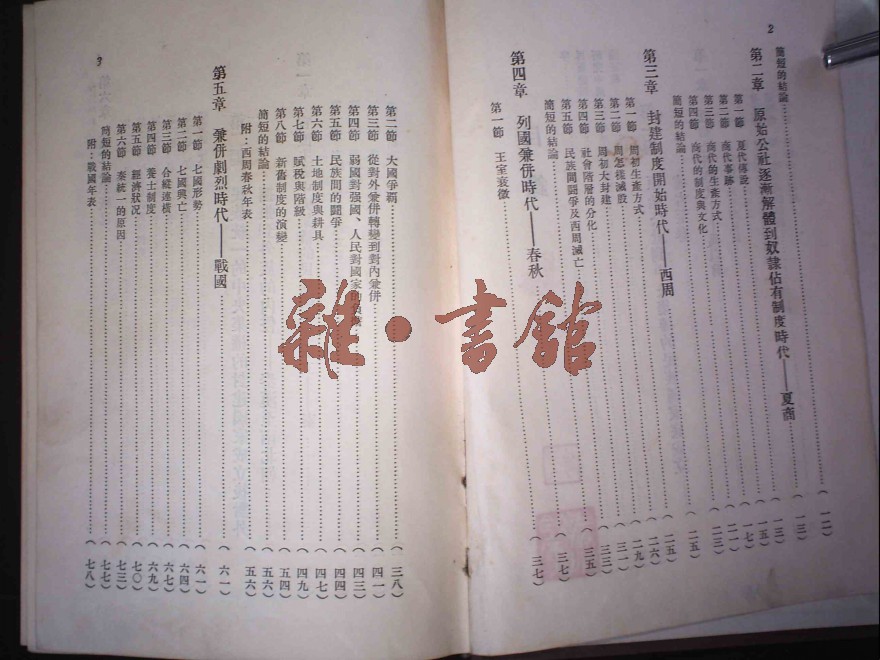 2
簡短的結論……(一二)
第二章 原始公社逐漸解體到奴隸佔有制度時代——夏商……(一三)
第一節 夏代傳說……(一三)
第二節 商代事跡……(一五)
第三節 商代的生產方式……(一七)
第四節 商代的制度與文化……(二一)
簡短的結論……(二三)
第三章 封建制度開始時代——西周……(二五)
第一節 周初生產方式……(二五)
第二節 周怎樣滅殷……(二六)
第三節 周初大封建……(二九)
第四節 社會階層的分化……(三一)
第五節 民族間鬪爭及西周滅亡……(三三)
簡短的結論……(三五)
第四章 列國兼併時代——春秋……(三七)
第一節 王室衰微……(三七)
3
第二節 大國爭霸……(三八)
第三節 從對外兼併轉變到對內兼併……(四一)
第四節 弱國對强國、人民對國家的負擔……(四三)
第五節 民族間的鬪爭……(四四)
第六節 土地制度與耕具……(四七)
第七節 賦稅與階級……(四九)
第八節 新舊制度的演變……(五四)
簡短的結論……(五六)
附：西周春秋年表……(五六)
第五章 兼併劇烈時代——戰國……(六一)
第一節 七國形勢……(六一)
第二節 七國興亡……(六四)
第三節 合縱連橫……(六七)
第四節 養士制度……(六九)
第五節 經濟狀況……(七〇)
第六節 秦統一的原因……(七三)
簡短的結論……(七七)
附：戰國年表……(七八)
雜·書館